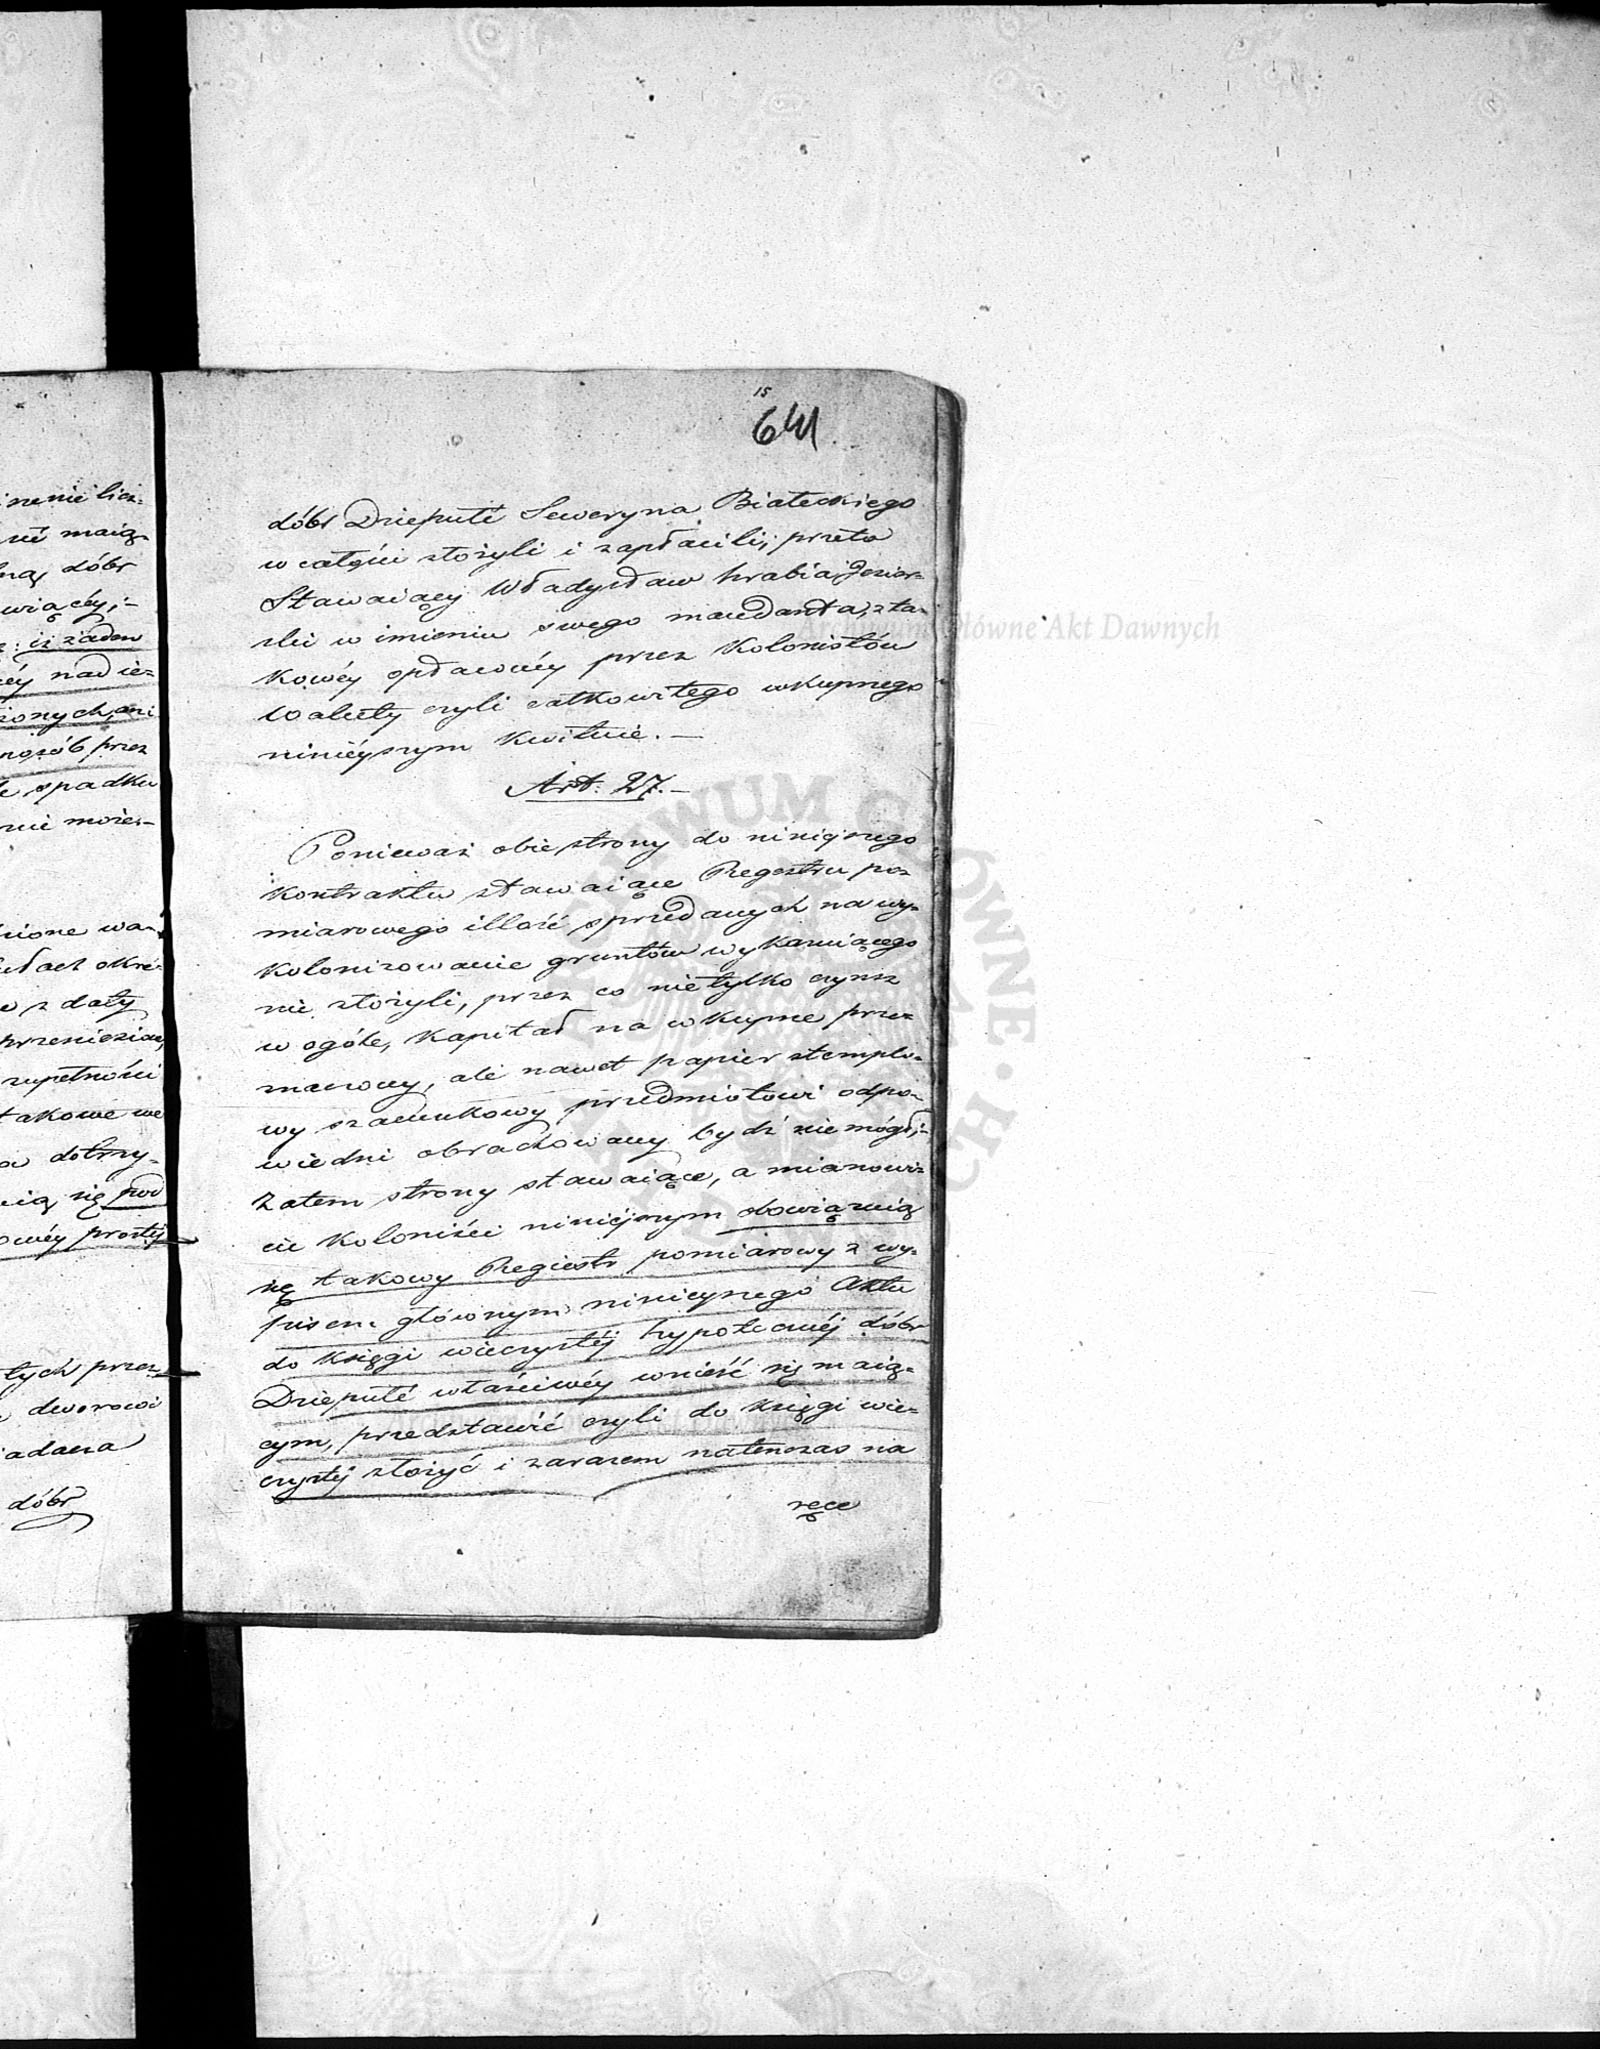 nenie licz-
dóbr
żaden
przez
spadku
nie może-
z daty
takowe we
się pod
prostej
tych przez
dworowi
dóbr
15
641
dóbr Dziepulć Seweryna Białeckiego
w całości złożyli i zapłacili; przeto
Stawaiący Władysław hrabia Jezior-
ski w imieniu swego mandanta, z ta-
kowéy opłaconéy przez Kolonistów
Waluty czyli całkowitego wkupnego
ninieyszym kwituie. —
Art: 27. —
Ponieważ obie strony do niniejszego
kontraktu stawaiące Regestru po-
miarowego illość sprzedanych na wy-
kolonizowanie gruntów wykazuiącego
nie złożyli, przez co nie tylko czynsz
w ogóle, kapitał na wkupne prze-
znaczony, ale nawet papier stemplo-
wy szacunkowy przedmiotowi odpo-
wiedni obrachowany bydź nie mógł;-
Zatem strony stawaiące, a mianowi-
cie Koloniści niniejszym obowiązuią
się takowy Regiestr pomiarowy z wy-
pisem głównym niniejszego Aktu
do księgi wieczystéj hypotecznéj dóbr
Dziepulć właściwéy wnieść się maią-
cym, przedstawić czyli do księgi wie-
czystéj złożyć i zarazem natenczas na
ręce
Archiwum Główne Akt Dawnych